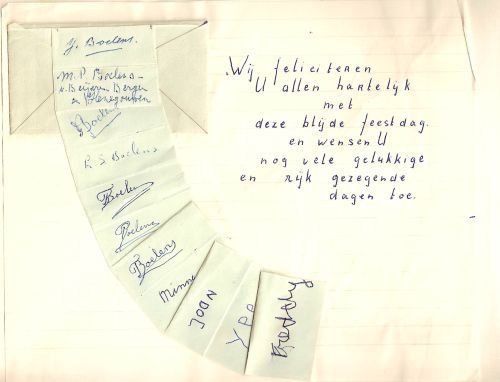 J. Boelens.
M.P. Boelens-
v. Beijeren Bergen
en Henegouwen
Boelens
R S Boelens
Boelens
Boelens
Boelens
Minne
NDOE
YPP
Wij feliciteren
U allen hartelijk
met
deze blijde feestdag.
en wensen U
nog vele gelukkige
en rijk gezegende
dagen toe.